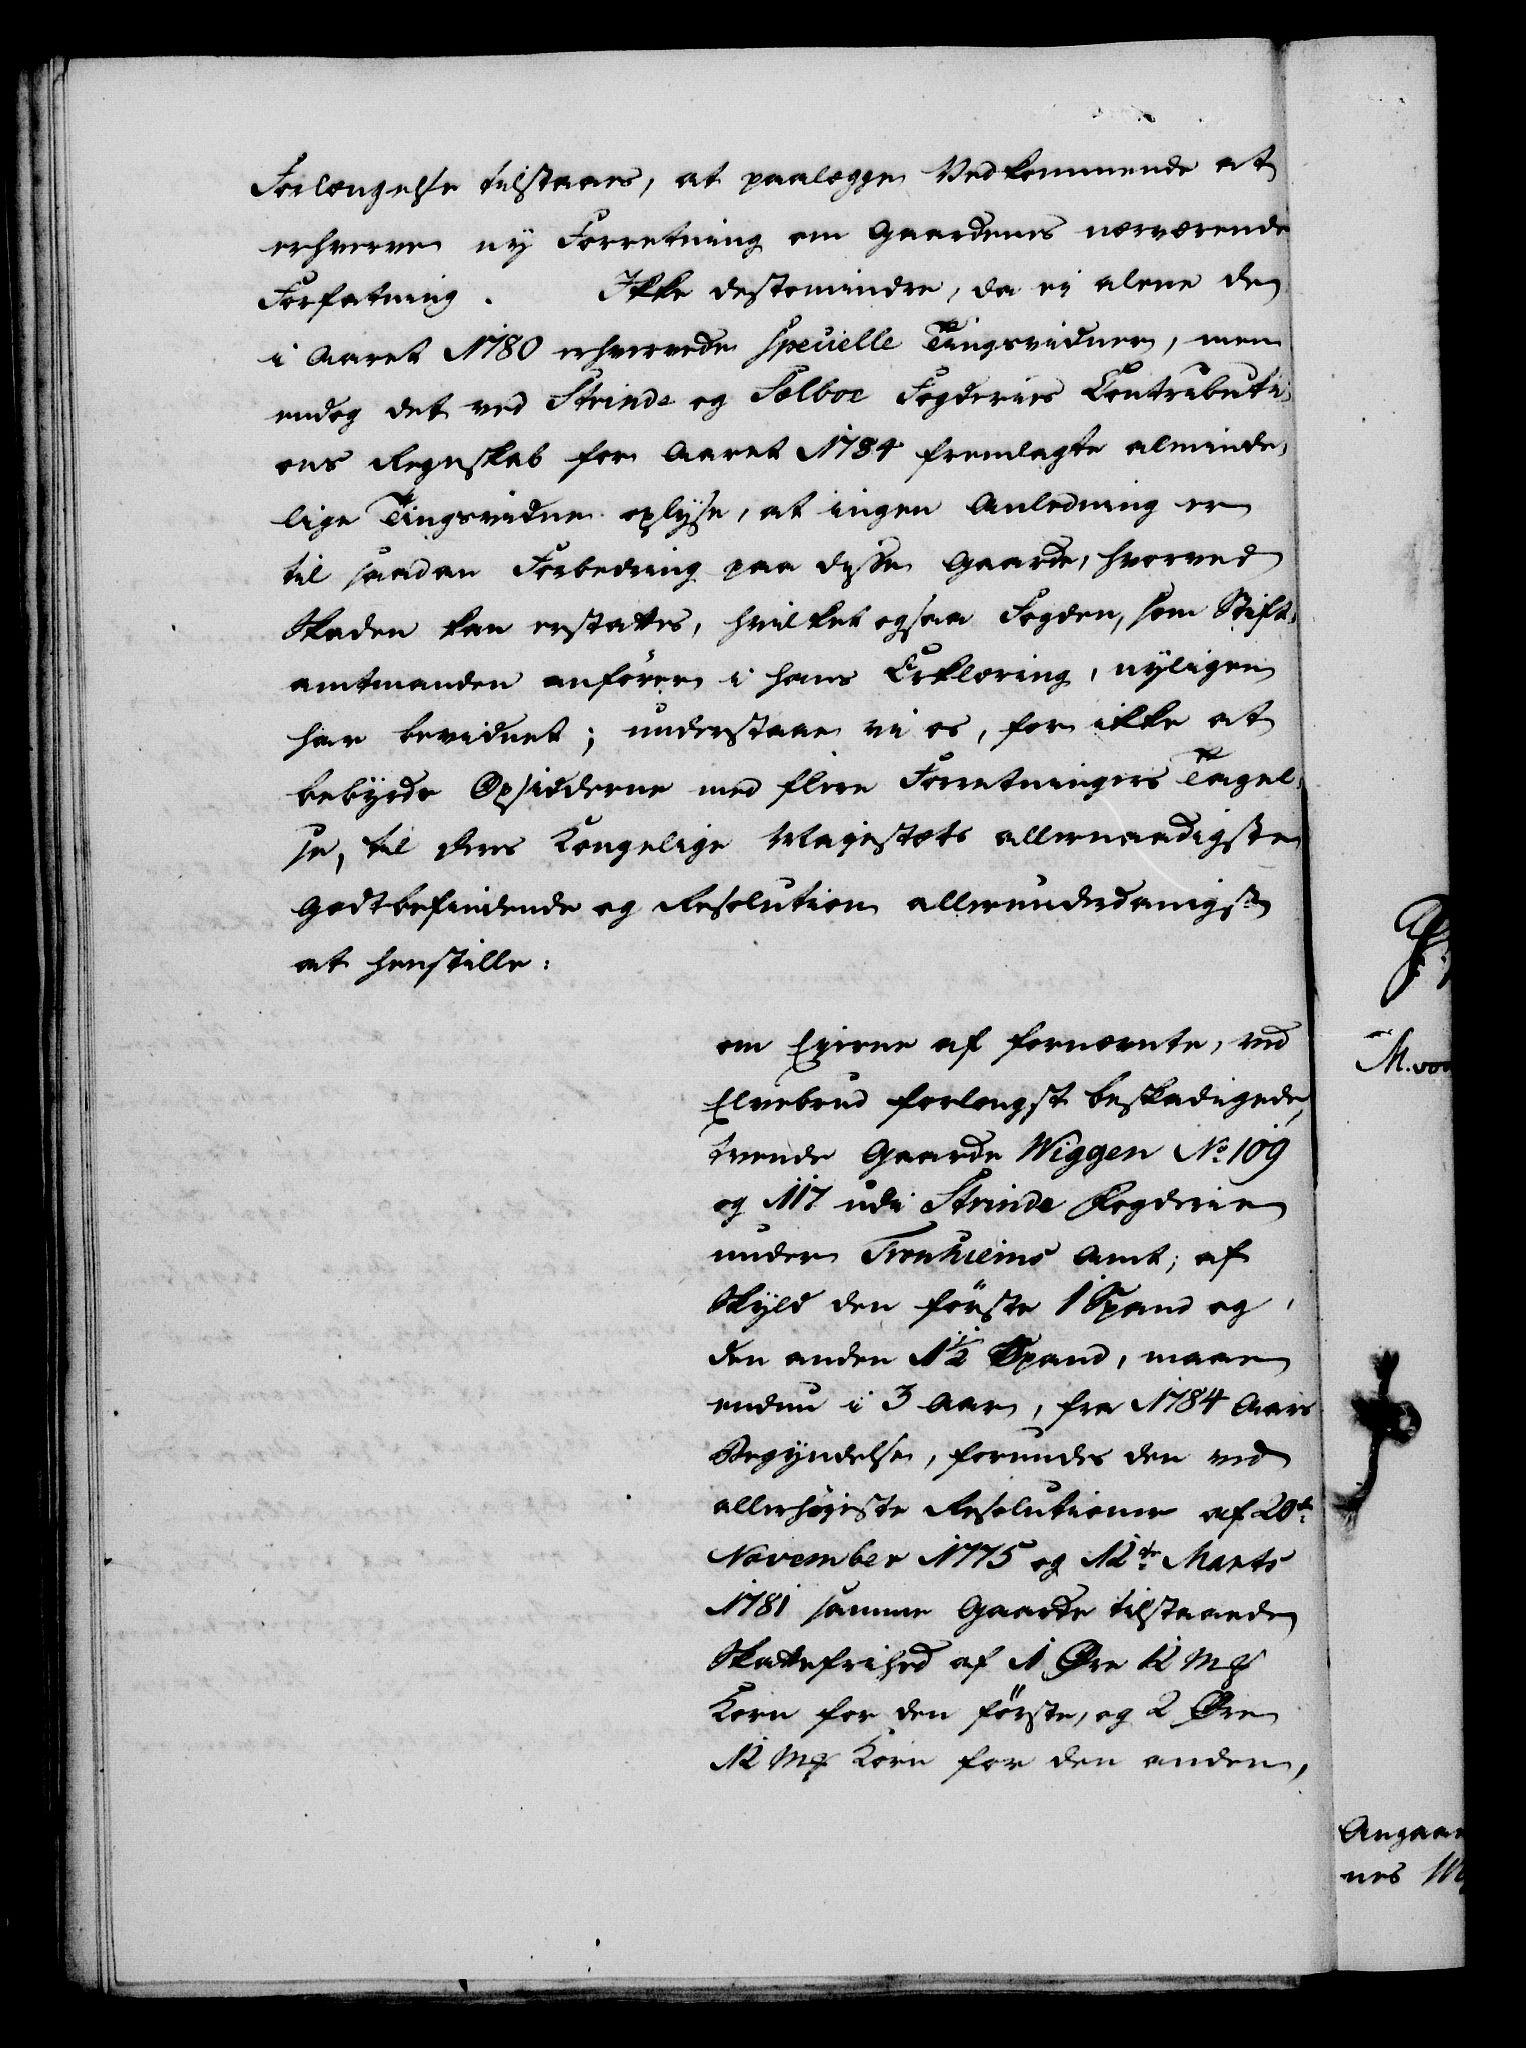 Forlængelse tilstaaes, at paalægge Vedkommende at
erhverve ny Forretning om Gaardenes nærværende
Forfatning. Ikke destomindre, da ei alene de
i Aaret 1780 erhvervede specielle Tingsvidner, men
endog det ved Strinde og Selboe Fogderies Contributi-
ons Regnskab for Aaret 1784 fremlagte alminde-
lige Tingsvidne oplyse, at ingen Anledning er
til saadan Forbedring paa disse Gaarde, hvorved
Skaden kan erstattes, hvilket ogsaa Fogden, som Stift-
amtmanden anfører i hans Erklæring, nyligen
har bevidnet; understaae vi os, for ikke at
bebyrde Opsidderne med flere Forretningers Tagel-
se, til Deres Kongelige Majestæts allernaadigste
Godtbefindende og Resolution allerunderdanigst
at henstille:
om Eierne af fornævnte, ved
Elvebrud forlængst beskadigede,
tvende Gaarde Wiggen No 109
og 117 udi Strinde Fogderie
under Tronhiems Amt, af
Skyld den første 1 Spand og
den anden 1½ Spand, maae
endnu i 3 Aar, fra 1784 Aars
Begyndelse, forundes den ved
allerhøieste Resolutioner af 20de
November 1775 og 12te Marts
1781 samme Gaarde tilstaaede
Skattefrihed af 1 Øre 12 Mk
Korn for den første, og 2 Øre
12 Mk Korn for den anden,
M. von
Angaa
nes